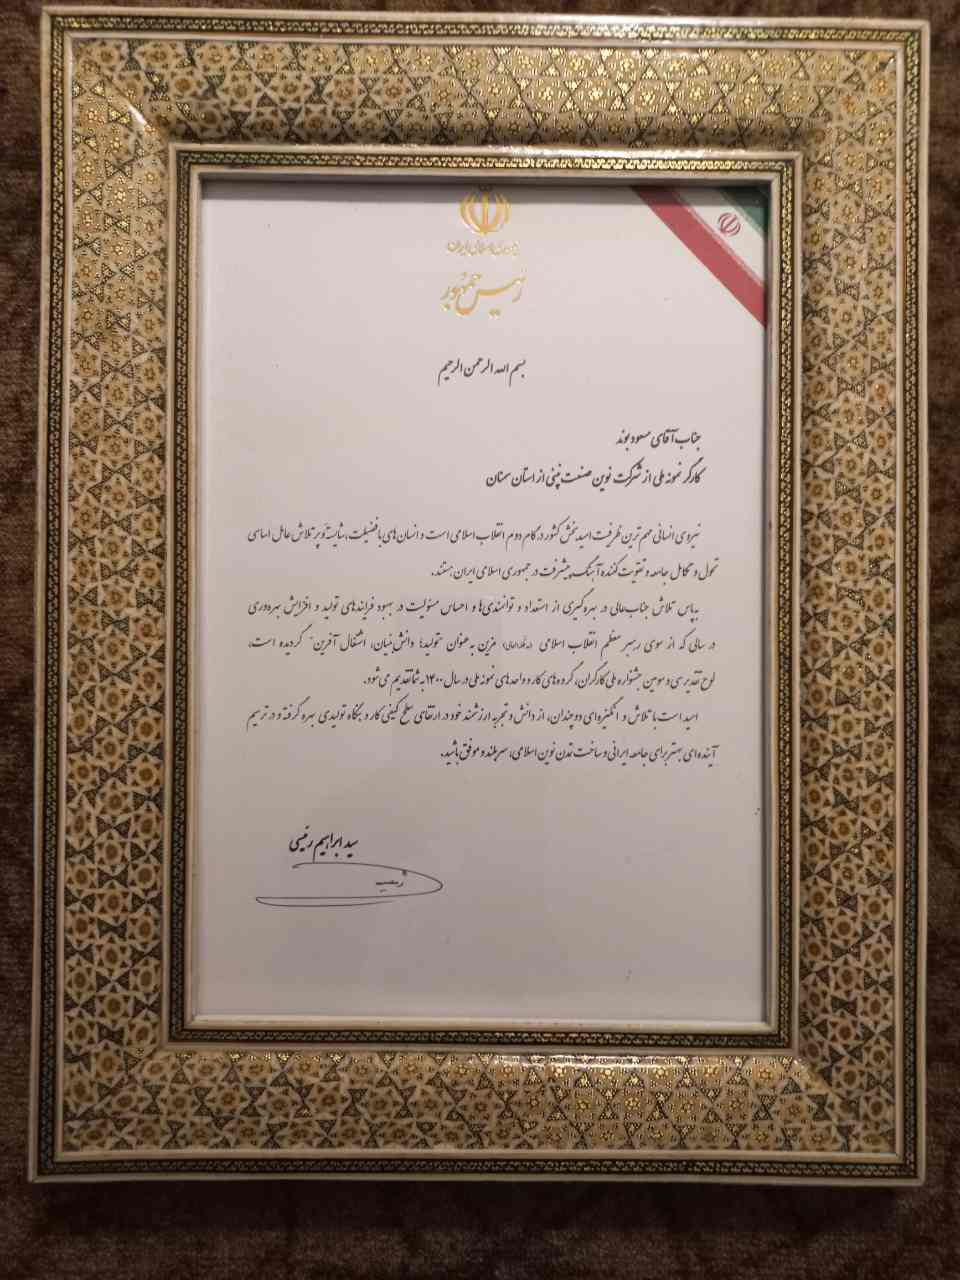 جمهوری اسلامی ایران
رئیس جمهور
بسم الله الرحمن الرحیم
جناب آقای مسعود بوند
کارگر نمونه ملی از شرکت نوین صنعت پنبی از استان سمنان
نیروی انسانی مهم ترین ظرفیت امیدبخش کشور در گام دوم انقلاب اسلامی است و انسان های با فضیلت، شایسته و پر تلاش عامل اساسی
تحول و تکامل جامعه و تقویت کننده آهنگ پیشرفت در جمهوری اسلامی ایران هستند.
به پاس تلاش جنابعالی در بهره گیری از استعداد و توانمندی ها و احساس مسئولیت در بهبود فرایندهای تولید و افزایش بهره وری
در سالی که از سوی رهبر معظم انقلاب اسلامی (مدظله العالی) مزین به عنوان "تولید؛ دانش بنیان، اشتغال آفرین" گردیده است،
لوح تقدیر سی و سومین جشنواره ملی کارگران، گروه های کار و واحدهای نمونه ملی در سال ۱۴۰۰ به شما تقدیم می شود.
امید است با تلاش و انگیزه ای دوچندان، از دانش و تجربه ارزشمند خود در ارتقای سطح کیفی کار و بنگاه تولیدی بهره گرفته و در ترسیم
آینده ای بهتر برای جامعه ایرانی و ساخت تمدن نوین اسلامی، سربلند و موفق باشید.
سید ابراهیم رئیسی